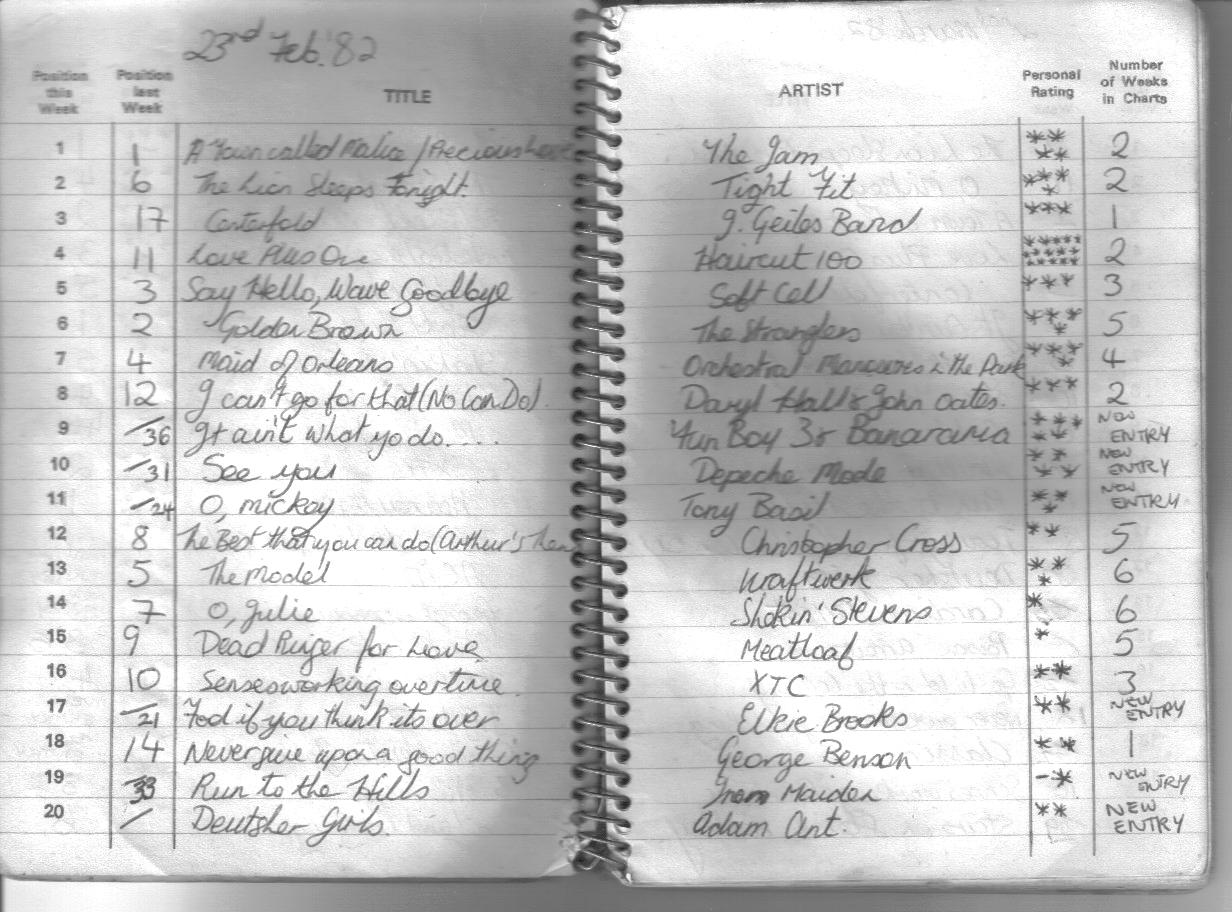 23rd Feb. '82
Position this Week Position last Week TITLE ARTIST Personal Rating Number of Weeks in Charts
1 1 A Town called Malice / Precious The Jam **** 2
2 6 The Lion Sleeps Tonight. Tight Fit **** 2
3 17 Centerfold J. Geiles Band *** 1
4 11 Love Plus One Haircut 100 2
5 3 Say Hello, Wave Goodbye Soft Cell *** 3
6 2 Golden Brown The Stranglers **** 5
7 4 Maid of Orleans Orchestral Manouvres in the Dark **** 4
8 12 I can't go for that (No Can Do). Daryl Hall & John Oates. *** 2
9 /36 It ain't what yo do.... Fun Boy 3 & Bananarama ***** NEW ENTRY
10 /31 See you Depeche Mode **** NEW ENTRY
11 /24 O, mickey Tony Basil *** NEW ENTRY
12 8 The Best that you can do (Arthur's Christopher Cross ** 5
13 5 The Model Kraftwerk *** 6
14 7 O, Julie Shakin' Stevens * 6
15 9 Dead Ringer for Love Meatloaf * 5
16 10 Senses working overtime XTC ** 3
17 /21 Fool if you think its over Elkie Brooks ** NEW ENTRY
18 14 Never give up on a good thing George Benson ** 1
19 33 Run to the Hills Iron Maiden -* NEW ENTRY
20 / Deutsher Girls. Adam Ant. ** NEW ENTRY